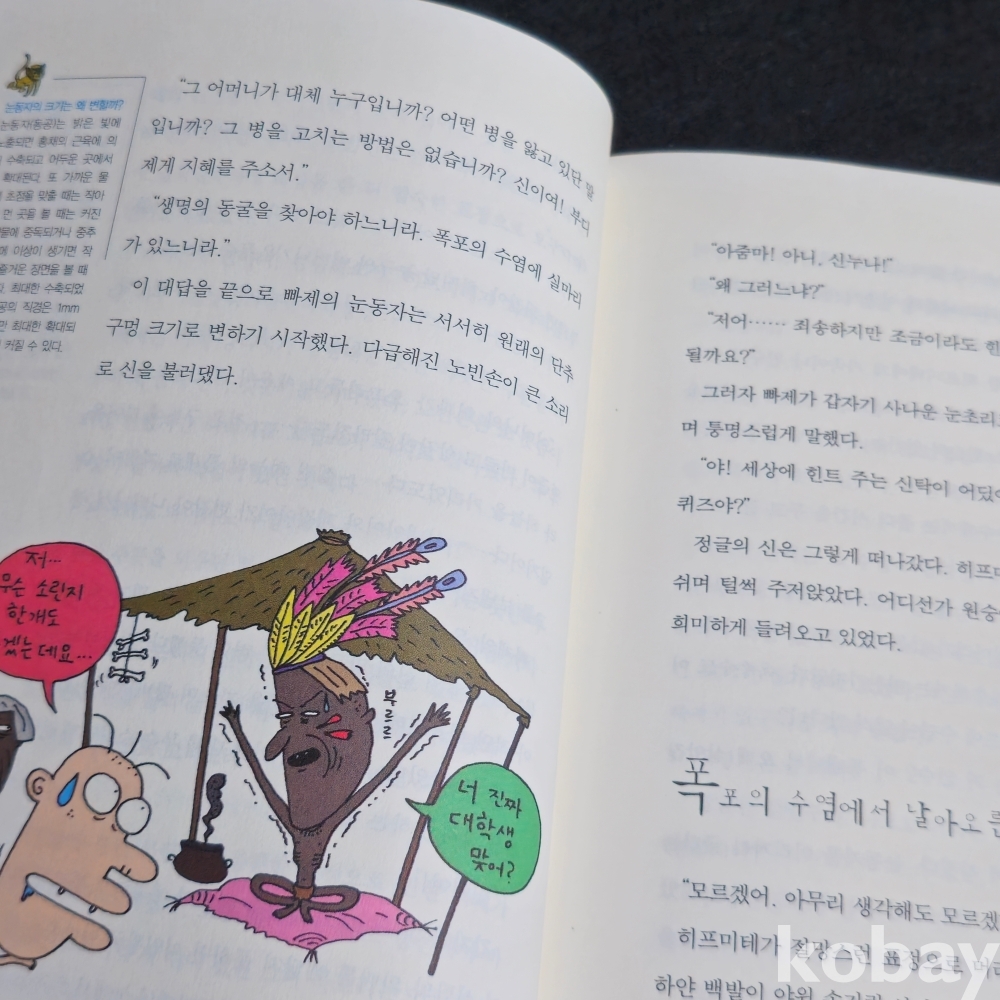 눈동자의 크기는 왜 변할까?
눈동자(동공)는 밝은 빛에
노출되면 홍채의 근육에 의
수축되고 어두운 곳에서
확대된다. 또 가까운 물
초점을 맞출 때는 작아
먼 곳을 볼 때는 커진
중독되거나 중추
에 이상이 생기면 작
즐거운 장면을 볼 때
최대한 수축되었
공의 직경은 1mm
만 최대한 확대되
커질 수 있다.
“그 어머니가 대체 누구입니까? 어떤 병을 앓고 있단 말
입니까? 그 병을 고치는 방법은 없습니까? 신이여! 부디
제게 지혜를 주소서.”
“생명의 동굴을 찾아야 하느니라. 폭포의 수염에 실마리
가 있느니라.”
이 대답을 끝으로 빠제의 눈동자는 서서히 원래의 단추
구멍 크기로 변하기 시작했다. 다급해진 노빈손이 큰 소리
로 신을 불러댔다.
저...
무슨 소린지
한개도
겠는데요...
부르르
너 진짜
대학생
맞어?
“아줌마! 아니, 신누나!”
“왜 그러느냐?”
“저어…… 죄송하지만 조금이라도 힌
될까요?”
그러자 빠제가 갑자기 사나운 눈초리
며 퉁명스럽게 말했다.
“야! 세상에 힌트 주는 신탁이 어딨어
퀴즈야?”
정글의 신은 그렇게 떠나갔다. 히프미
쉬며 털썩 주저앉았다. 어디선가 원숭
희미하게 들려오고 있었다.
폭포의 수염에서 날아오른
“모르겠어. 아무리 생각해도 모르겠
히프미테가 절망스런 표정으로
하얀 백발이
kobay